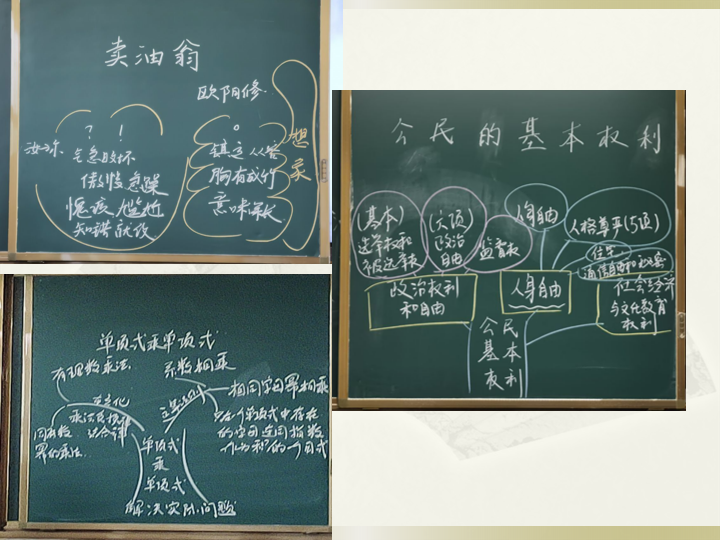 卖油翁
欧阳修
？ ！ 。
气急败坏
傲慢急躁
怀疑 尴尬
知错就改
镇定从容
胸有成竹
意味深长
想
公民的基本权利
(基本)
选举权和
被选举权
(六项)
政治
自由
监督权
人身自由
人格尊严(5项)
住宅
通信自由和秘密
政治权利
和自由
人身自由
社会经济
与文化教育
权利
公民
基本
权利
单项式乘单项式
有理数乘法
系数相乘
相同字母幂相乘
乘法交换律
结合律
同底数
幂的乘法
只在一个单项式中存在
的字母连同指数
作为积的一个因式
单项式
乘
单项式
解决实际问题